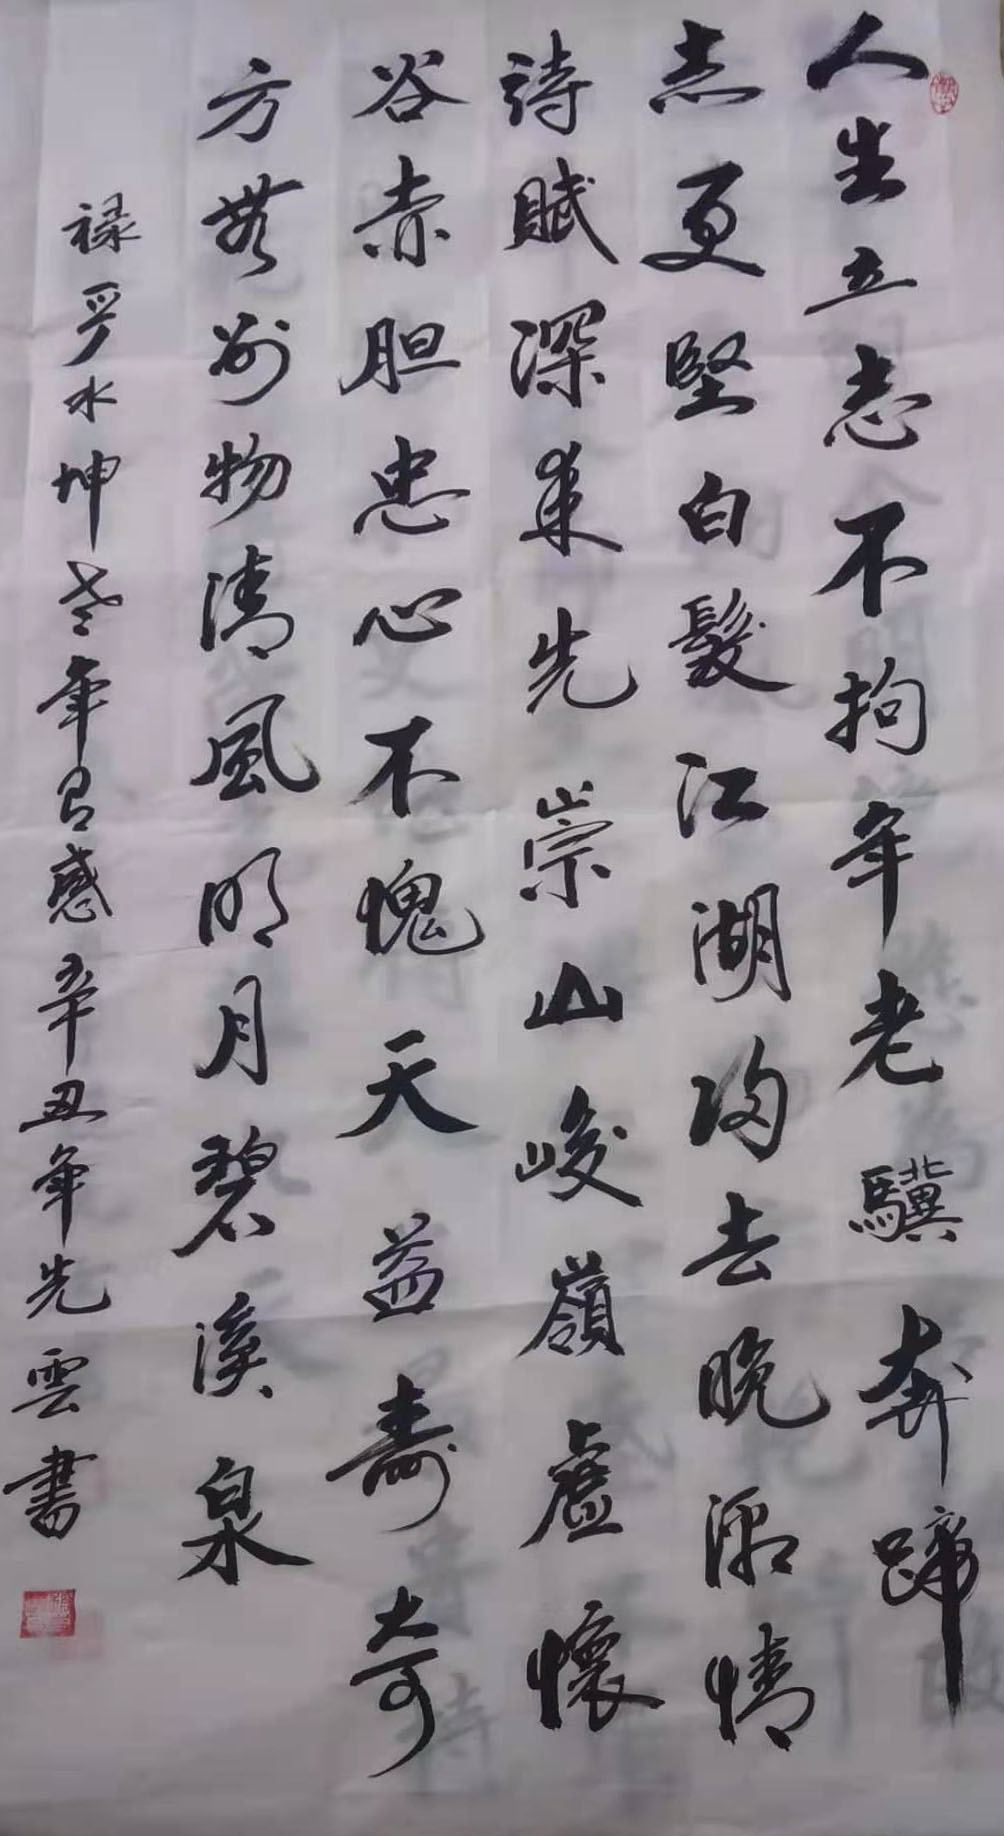 人生立志不拘年老驥奔蹄
志更堅白髮江湖归去晚情
詩賦深来先崇山峻嶺虛懷
谷赤胆忠心不愧天益壽奇
方無别物清風明月碧溪泉
禄水坤老年有感辛丑年先雲書